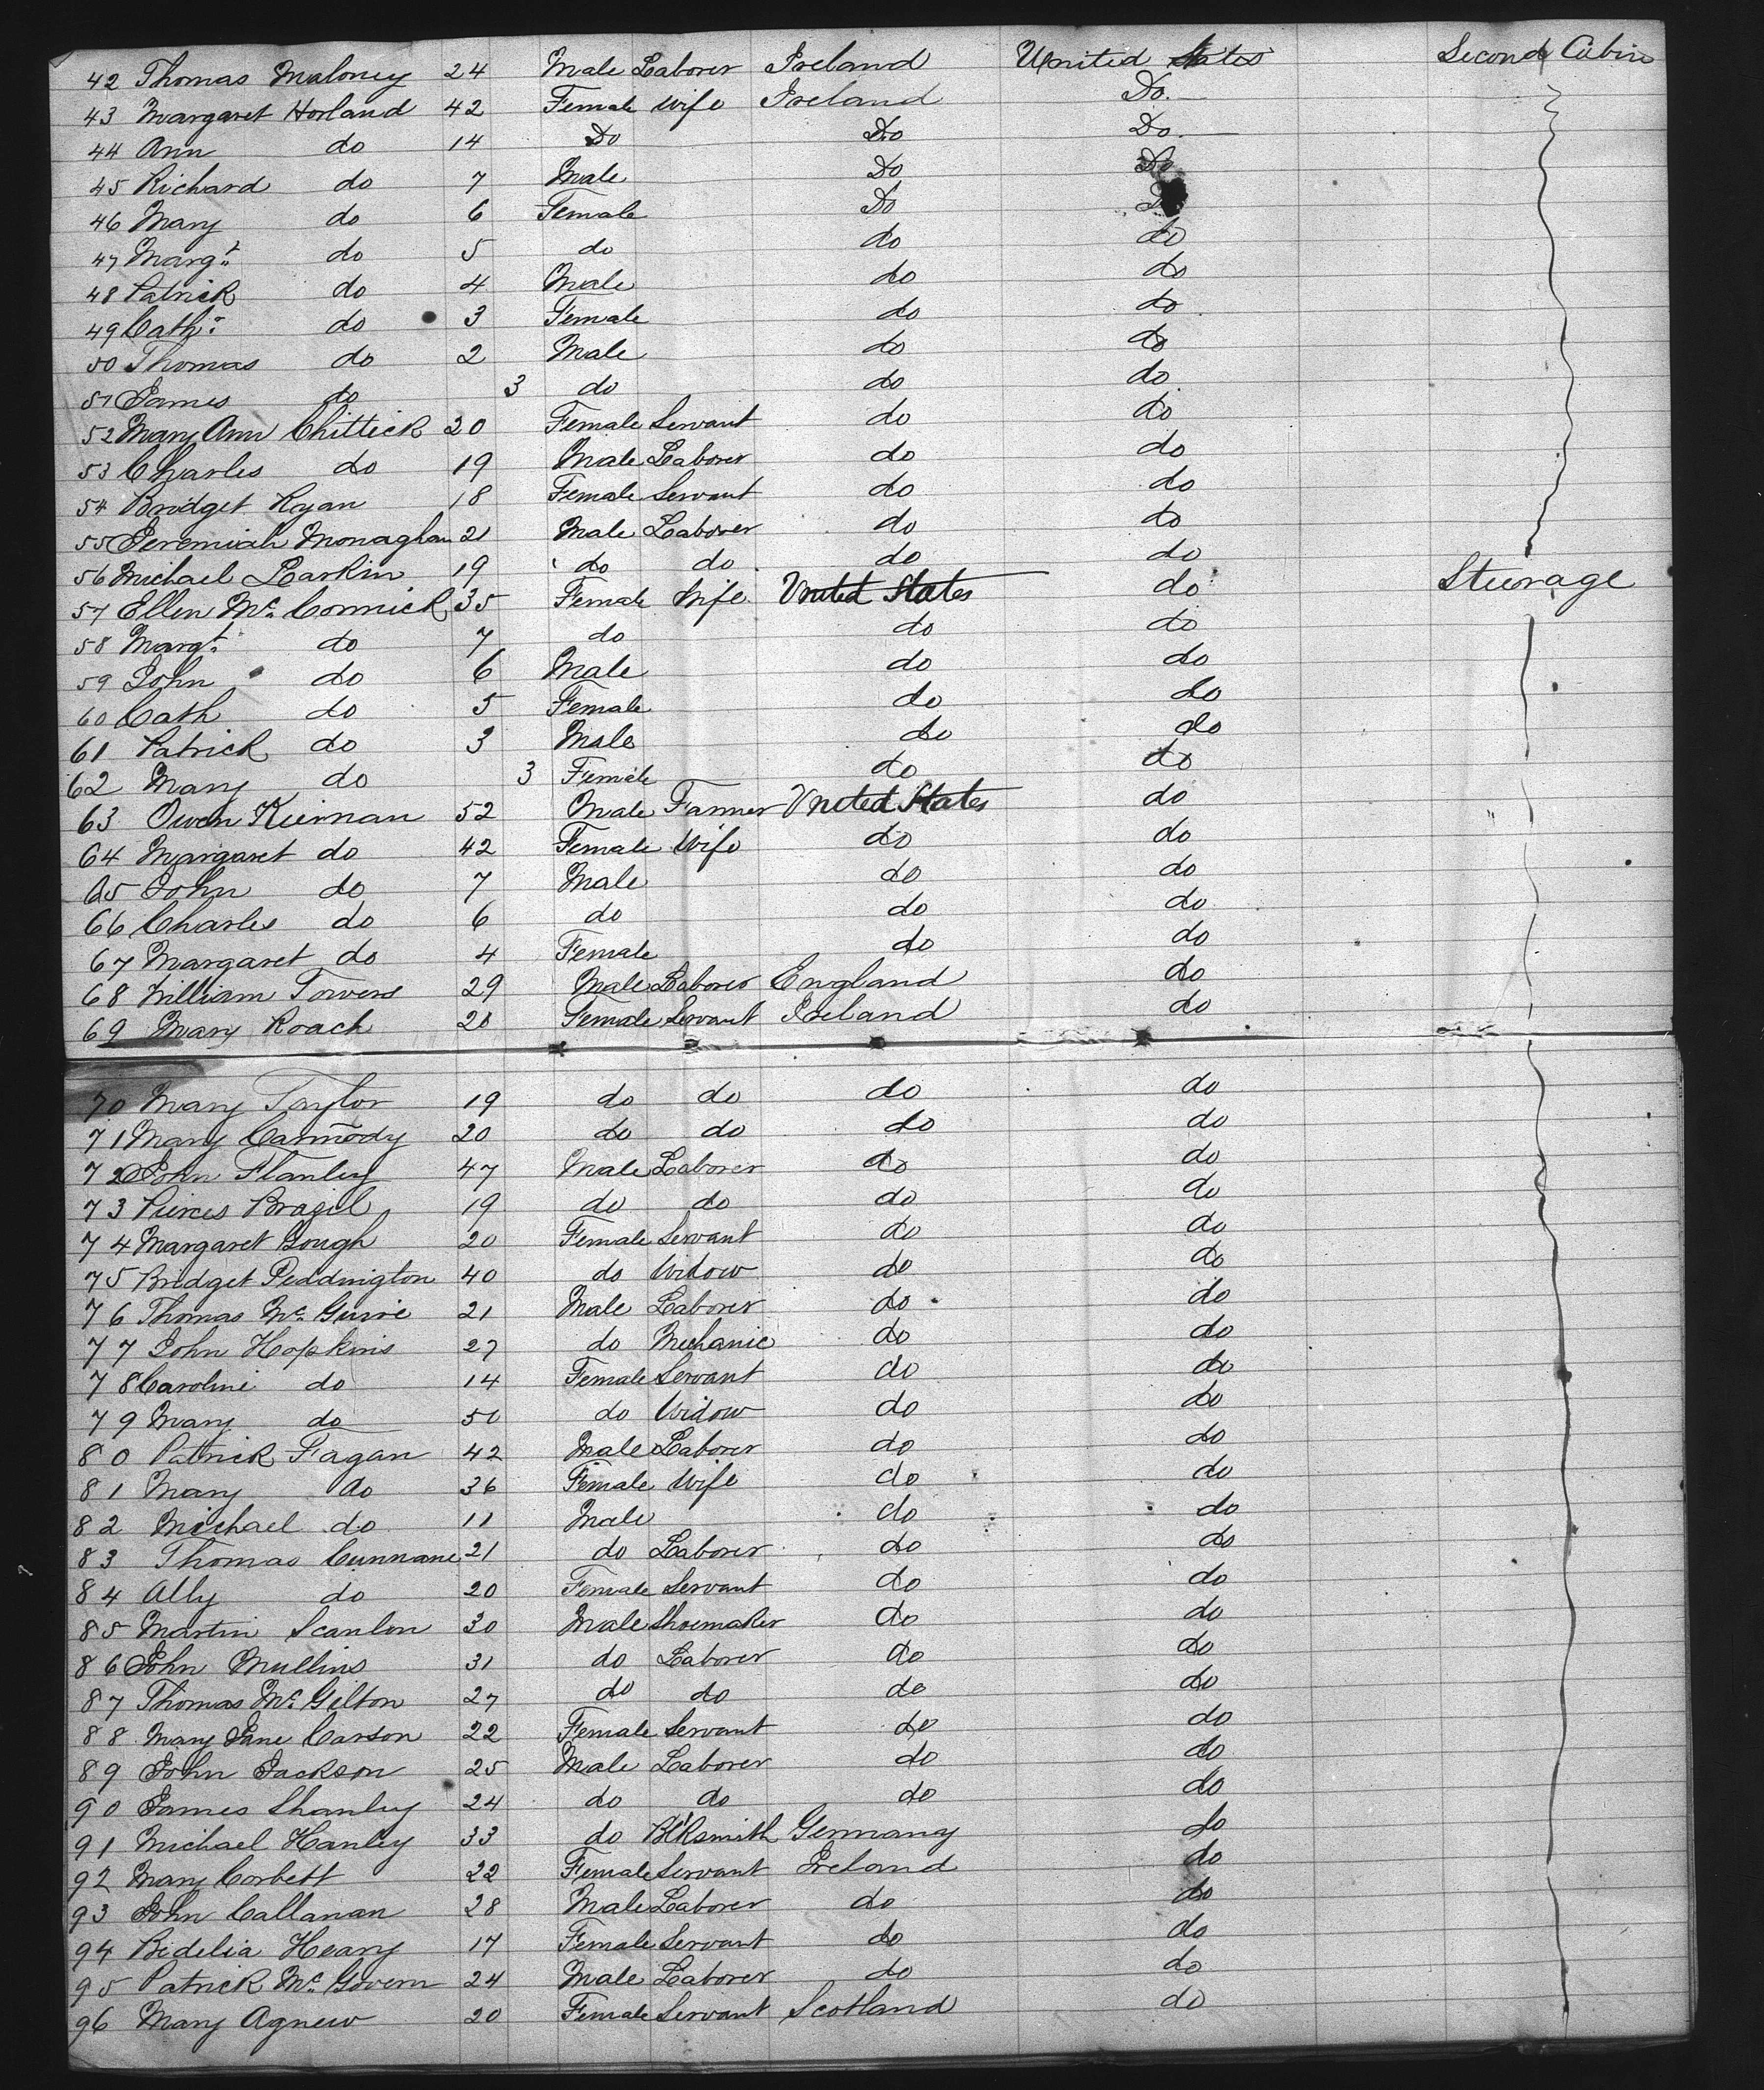 42 Thomas Maloney 24 Male Laborer Ireland United States Second Cabin
43 Margaret Horland 42 Female Wife Ireland Do.
44 Ann do 14 Do Do Do.
45 Richard do 7 Male Do Do
46 Mary do 6 Female Do Do
47 Margt. do 5 do do do
48 Patrick do 4 Male do do
49 Cath. do 3 Female do do
50 Thomas do 2 Male do do
51 James do 3 do do do
52 Mary Ann Chittick 20 Female Servant do do
53 Charles do 19 Male Laborer do do
54 Bridget Ryan 18 Female Servant do do
55 Jeremiah Monaghan 21 Male Laborer do do
56 Michael Larkin 19 do do do do
57 Ellen Mc. Cormick 35 Female Wife United States do Steerage
58 Margt. do 7 do do do
59 John do 6 Male do do
60 Cath do 5 Female do do
61 Patrick do 3 Male do do
62 Mary do 3 Female do do
63 Owen Kiernan 52 Male Farmer United States do
64 Margaret do 42 Female Wife do do
65 John do 7 Male do do
66 Charles do 6 do do do
67 Margaret do 4 Female do do
68 William Towers 29 Male Laborer England do
69 Mary Roach 20 Female Servant Ireland do
70 Mary Taylor 19 do do do do
71 Mary Carmody 20 do do do do
72 John Flanley 47 Male Laborer do do
73 Pierces Bragil 19 do do do do
74 Margaret Gough 20 Female Servant do do
75 Bridget Peddington 40 do Widow do do
76 Thomas Mc. Guire 21 Male Laborer do do
77 John Hopkins 27 do Mechanic do do
78 Caroline do 14 Female Servant do do
79 Mary do 50 do Widow do do
80 Patrick Fagan 42 Male Laborer do do
81 Mary do 36 Female Wife do do
82 Michael do 11 Male do do
83 Thomas Cunnane 21 do Laborer do do
84 Ally do 20 Female Servant do do
85 Martin Scanlon 30 Male Shoemaker do do
86 John Mullins 31 do Laborer do do
87 Thomas Mc. Gilton 27 do do do do
88 Mary Jane Carson 22 Female Servant do do
89 John Jackson 25 Male Laborer do do
90 James Shanley 24 do do do do
91 Michael Hanley 33 do Blksmith Germany do
92 Mary Corbett 22 Female Servant Ireland do
93 John Callanan 28 Male Laborer do do
94 Bidelia Heany 17 Female Servant do do
95 Patrick Mc. Govern 24 Male Laborer do do
96 Mary Agnew 20 Female Servant Scotland do